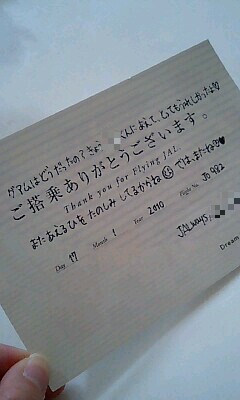 グアムはどうだったの？きょう くんにあえて、とてもうれしかったな♡
ご搭乗ありがとうございます。
Thank you for Flying JAL.
またあえるひを たのしみ してるからね☺ では、またね♡♥
Day 17 Month 1 Year 2010 Flight No. JO 982
JALways
Dream